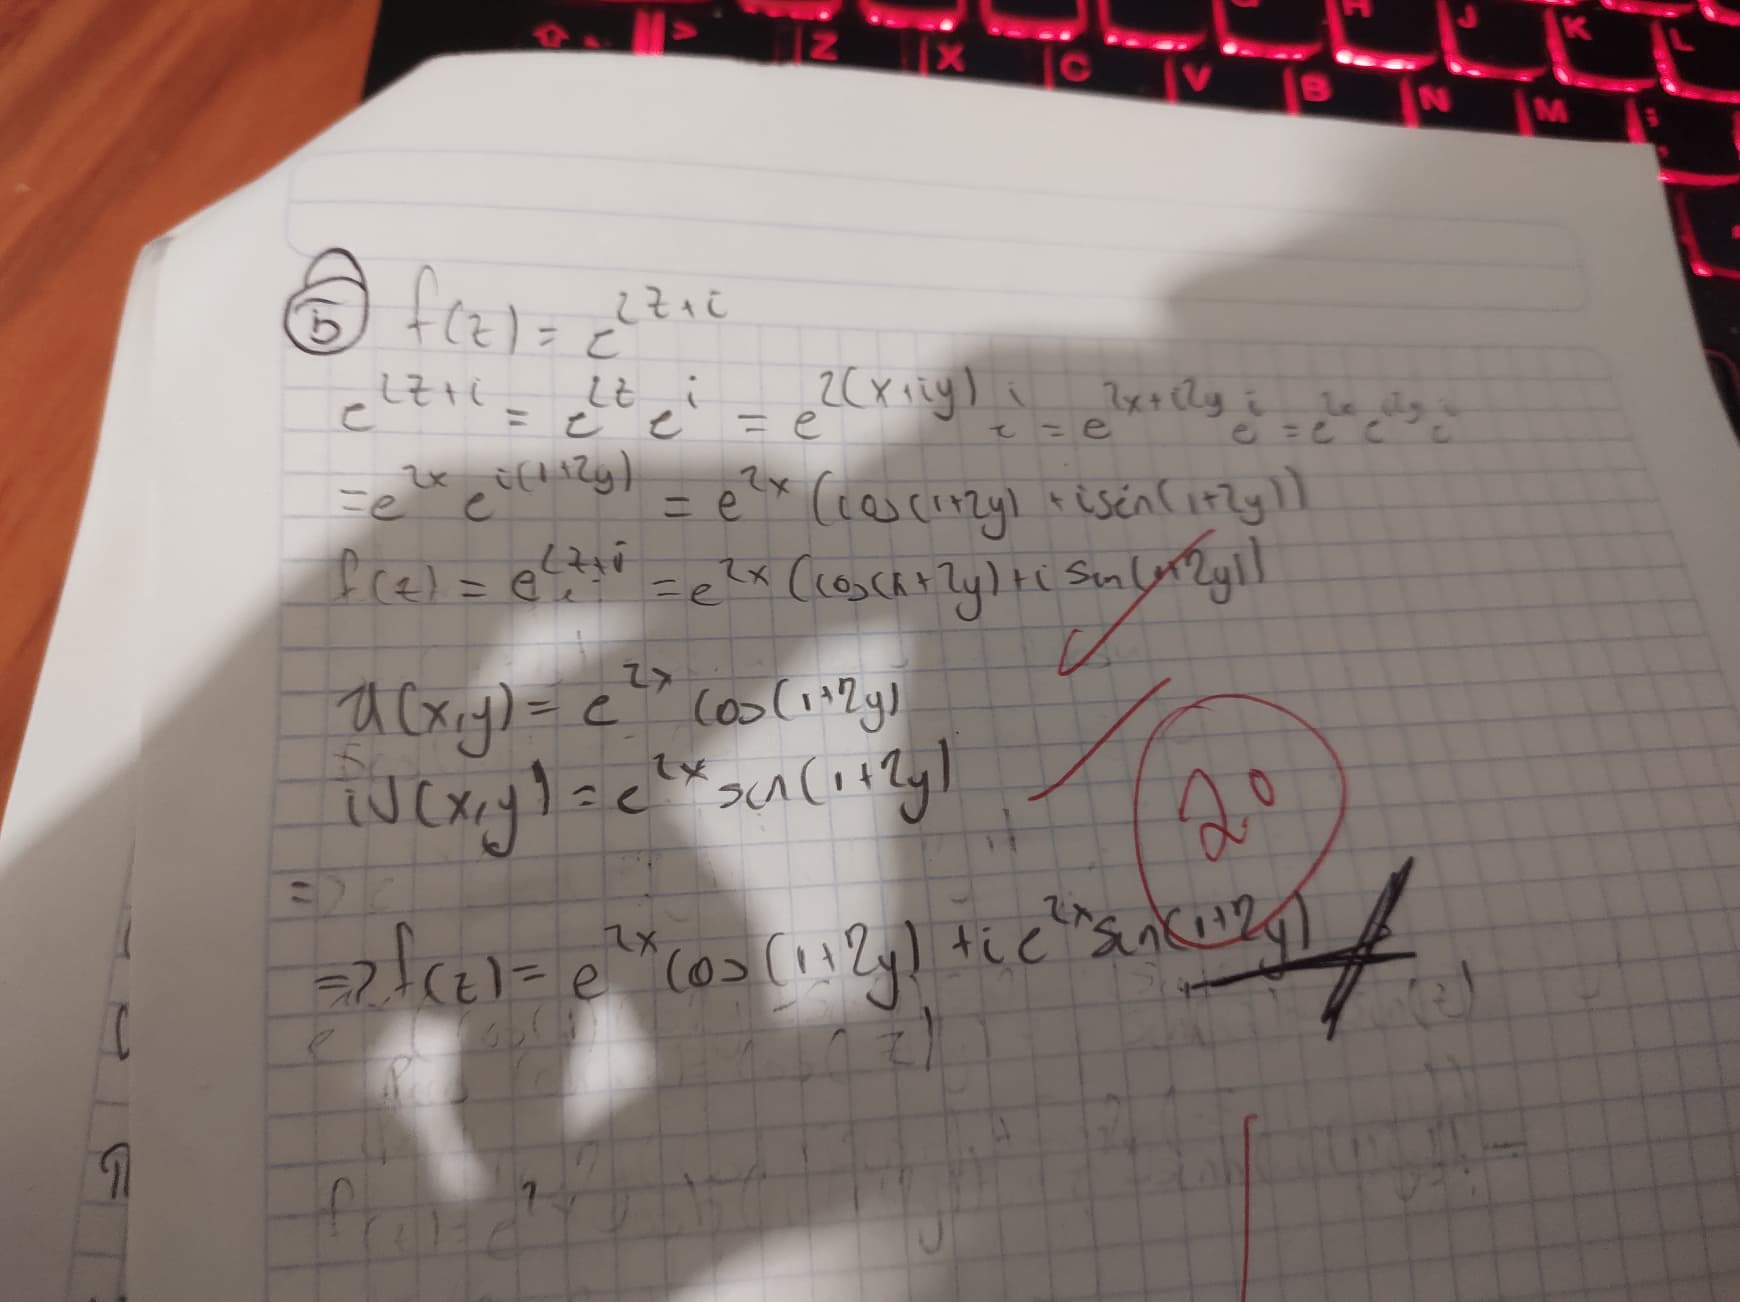 Z X C V B N M ;
H J K L
b f(z) = e^{2z+i}
e^{2z+i} = e^{2z} e^{i} = e^{2(x+iy)} e^{i} = e^{2x+i2y} e^{i} = e^{2x} e^{i2y} e^{i}
= e^{2x} e^{i(1+2y)} = e^{2x} (cos(1+2y) + i sen(1+2y))
f(z) = e^{2z+i} = e^{2x} (cos(1+2y) + i sen(1+2y))
u(x,y) = e^{2x} cos(1+2y)
iv(x,y) = e^{2x} sen(1+2y)
20
=>
=> f(z) = e^{2x} cos(1+2y) + i e^{2x} sen(1+2y)